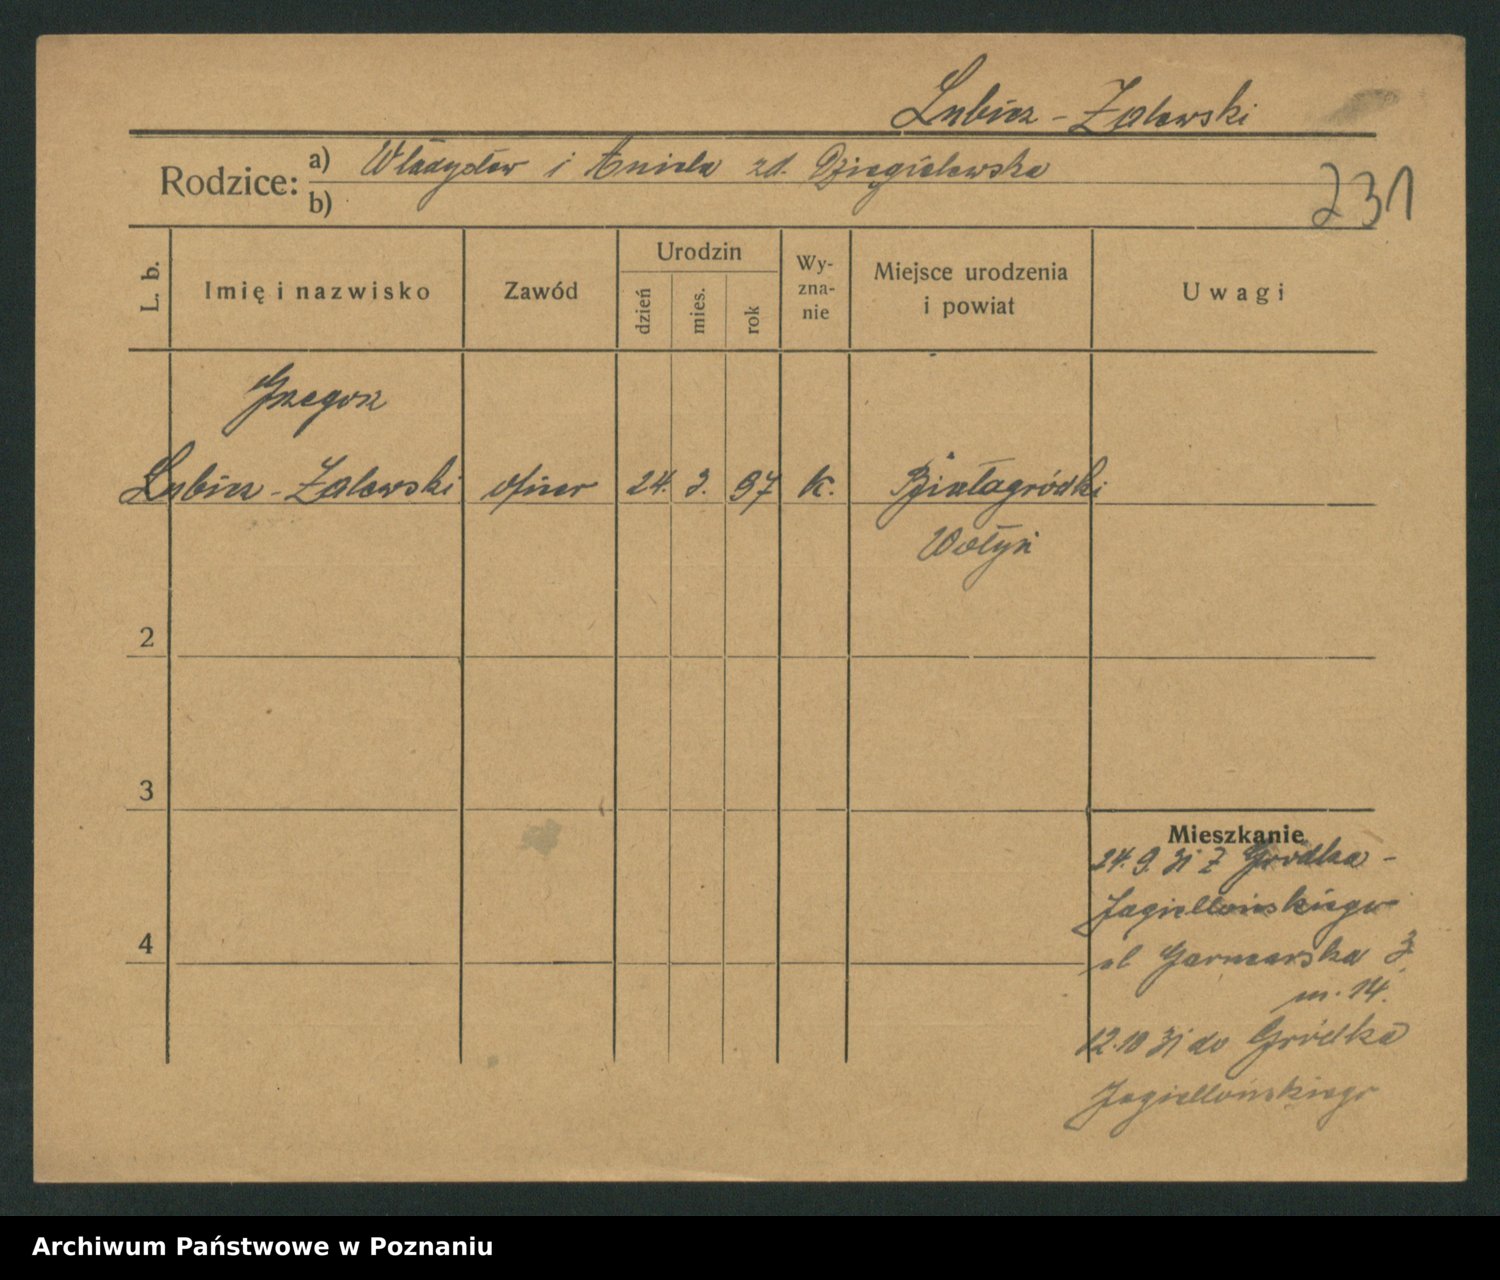 Lubicz - Zalewski
Rodzice: a) Władysław i Aniela zd. Dzięgielewska
b)
231
L. b. Imię i nazwisko Zawód Urodzin dzień mies. rok Wy-zna-nie Miejsce urodzenia i powiat Uwagi
Grzegorz
Lubicz - Zalewski oficer 24. 3. 97 K. Białagródki
Wołyń
2
3
4
Mieszkanie
24. 9. 31 z Gródka -
Jagiellońskiego
ul Garncarska 3
m. 14.
12.10 31 do Gródka
Jagiellońskiego
Archiwum Państwowe w Poznaniu